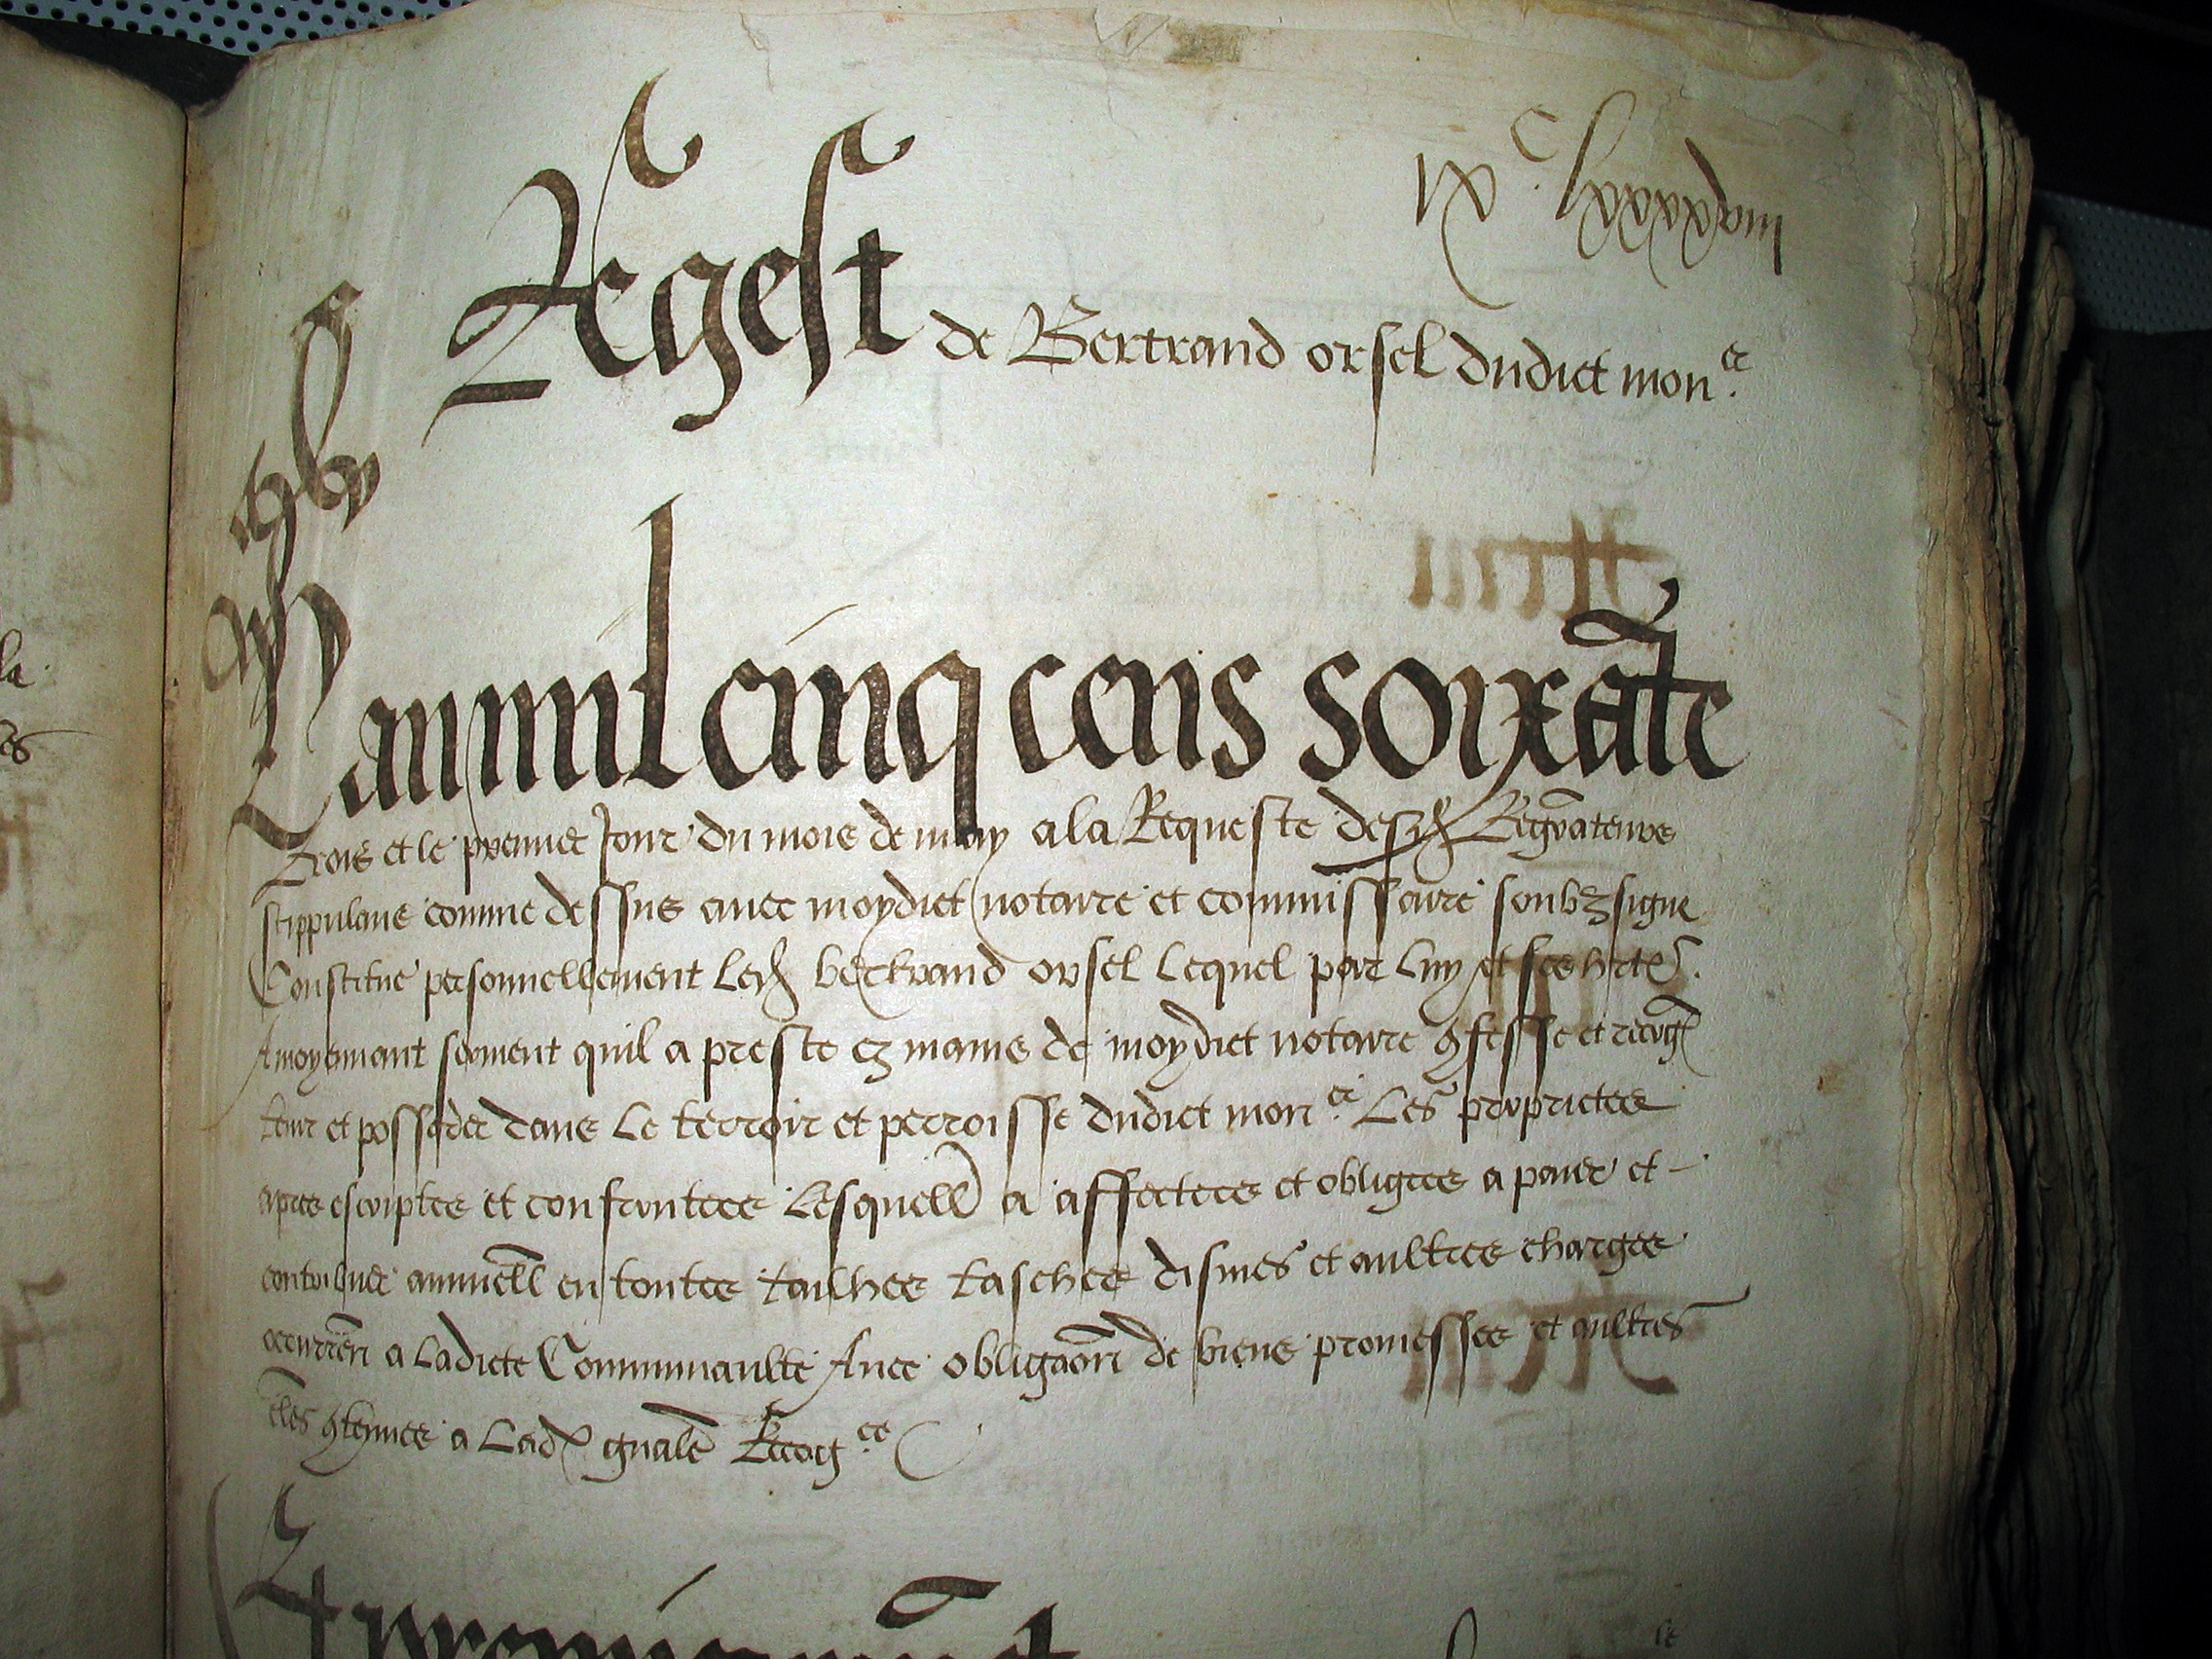 ixc lxxxxviii
Regest de Bertrand orsel dudict monce.
L'an mil cinq cens soixãte
Trois et le premier Jour du mois de may a la Requeste desd Regrateurs
stippulans comme dessus avec moydict notaire et commissaire soubzsigne
Constitue personnellement Led bertrand orsel Lequel par Luy et ses
moyennant serment quil a preste ez mains de moydict notaire 9fesse et recog
tenir et posseder dans Le terroir et perroisse dudict monce. Les proprietes
apres escriptes et confrontees Lesquell a affectees et obligees a paier et
contribuer annuell en toutes tailhes tasches dismes et aultres charges
occurren a Ladicte Communaulte Avec obligaon de biens promesses et aultres
9tenues a Lad gnale Recogce
Et premierement